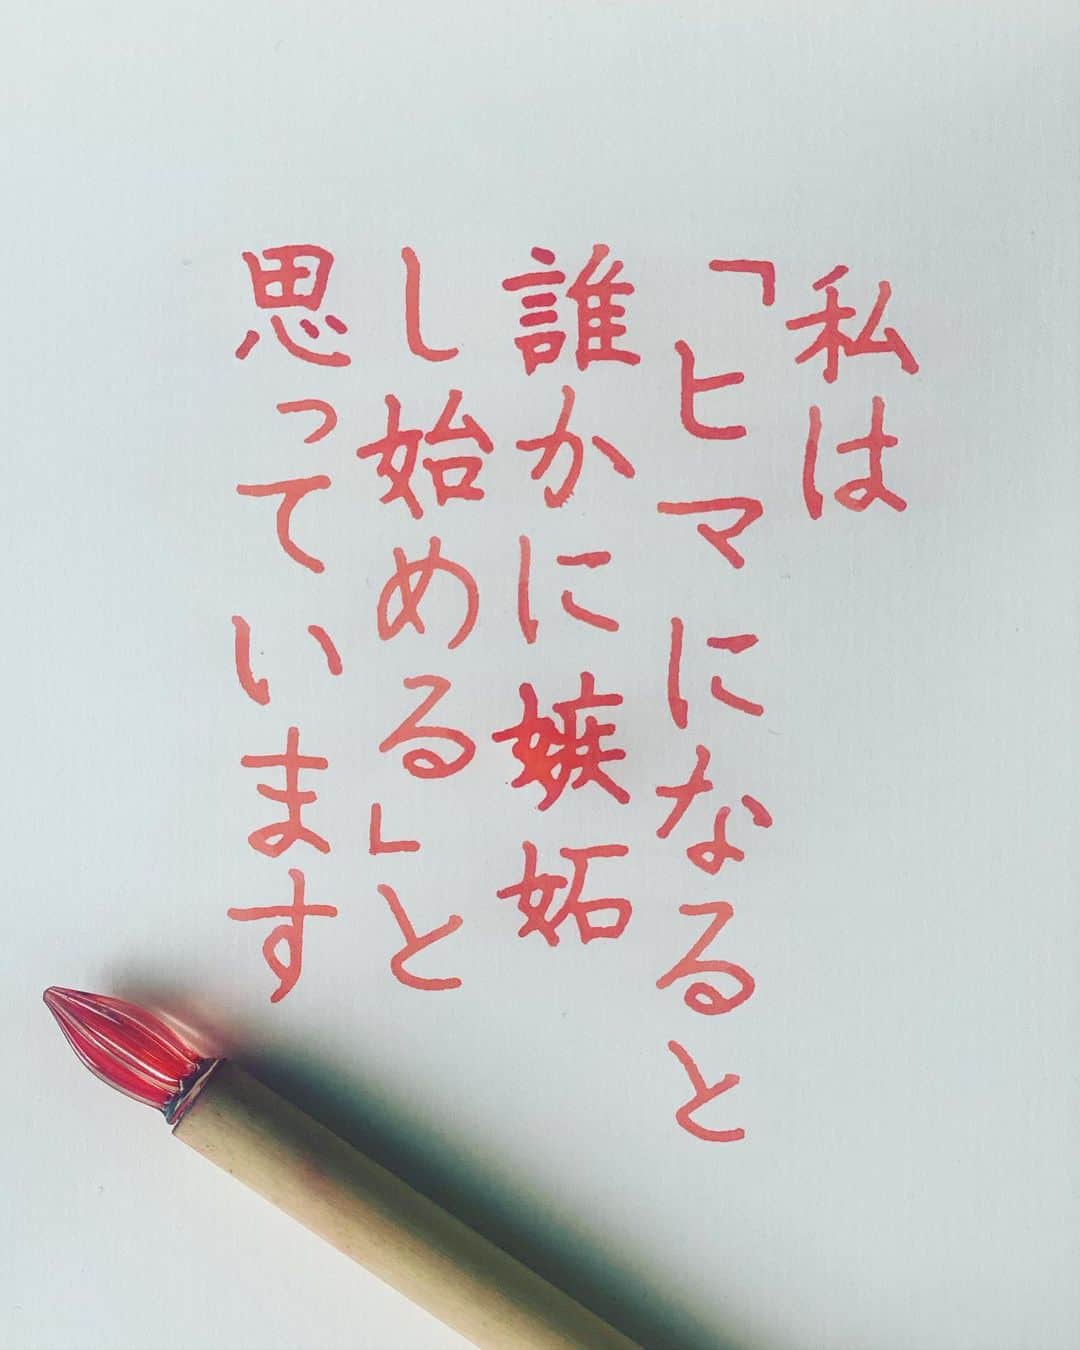 私は
「ヒマになると
誰かに嫉妬
し始める」と
思っています